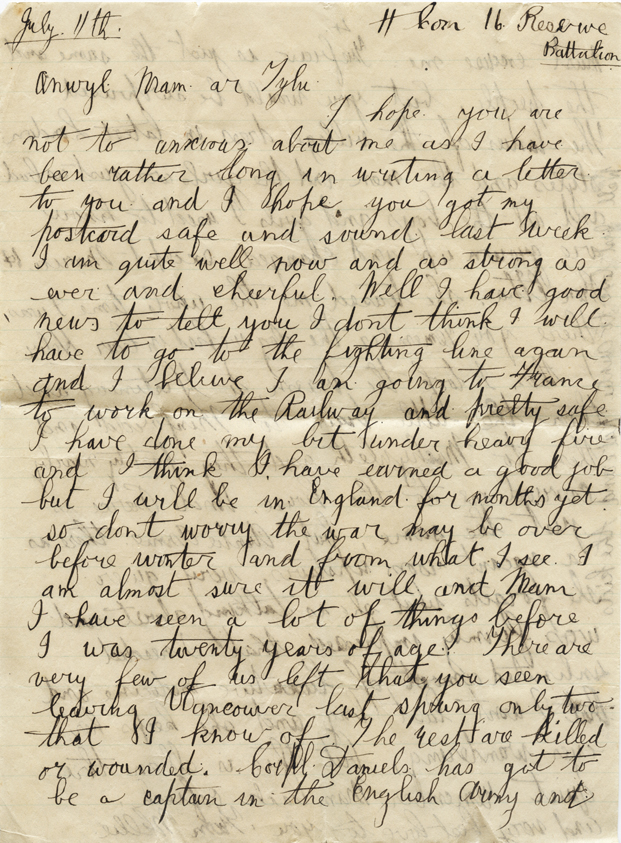 July. 11th.
H Com 16 Reserve
Battalion
Anwyl Mam ar Tylu
I hope you are
not to anxious about me as I have
been rather long in writing a letter
to you and I hope you got my
postcard safe and sound last week.
I am quite well now and as strong as
ever and cheerful. Well I have good
news to tell you I dont think I will
have to go to the fighting line again
and I believe I am going to France
to work on the Railway and pretty safe
I have done my bit under heavy fire
and I think I have earned a good job
but I will be in England for months yet
so dont worry the war may be over
before winter and from what I see I
am almost sure it will and Mam
I have seen a lot of things before
I was twenty years of age. There are
very few of us left that you seen
leaving Vancouver last spring only two
that I know of The rest are killed
or wounded. Daniels has got to
be a captain in the English Army and